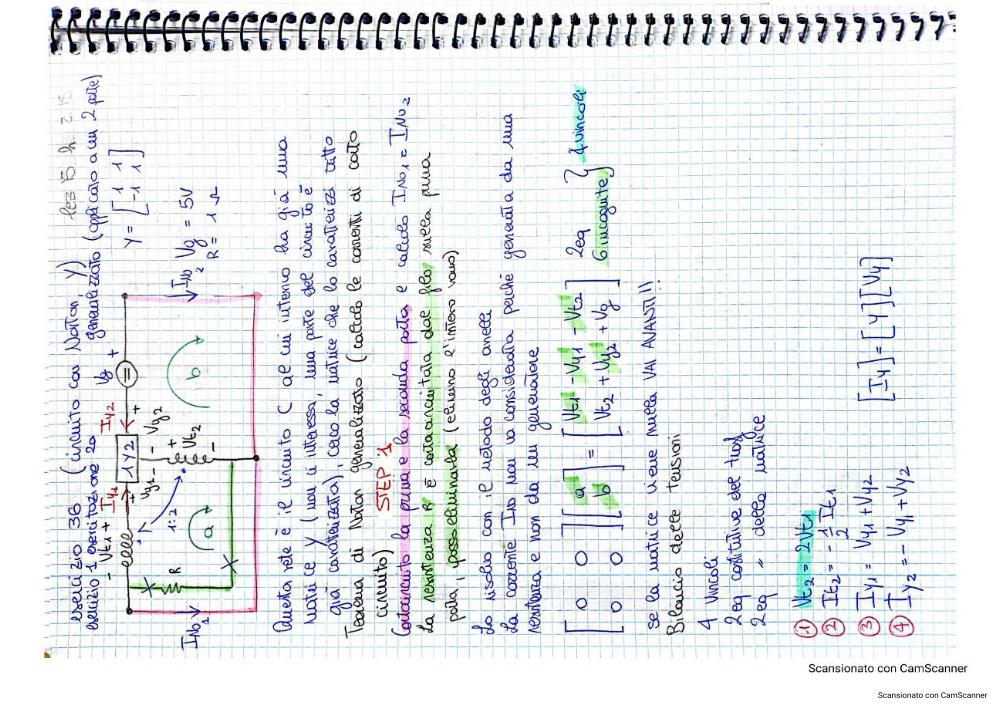 lez 15 h. 2.15
esercizio 36 (circuito con Norton, Y)
esercizio 1 esercitazione 20 generalizzato (applicato a un 2 porte)
Y = [ 1 1
-1 1 ]
Vg = 5V
R = 1 Ω
INo1
INo2
Iy1
Iy2
- Vt1 +
+ Vy1 -
- Vy2 +
Vg +
1Y2
1:2
+ Vt2 -
R
a
b
Questa rete è il circuito C al cui interno ha già una
matrice Y (non ci interessa, una parte del circuito è
già caratterizzata), cerco la matrice che lo caratterizzi tutto
Teorema di Norton generalizzato (calcolo le correnti di corto
circuito) STEP 1
Cortocircuito la prima e la seconda porta e calcolo INo1 e INo2
La resistenza R è cortocircuitata dal filo sulla prima
porta, posso eliminarla (elimino l'intero ramo)
Lo risolvo con il metodo degli anelli
La corrente INo non va considerata perché generata da una
resistenza e non da un generatore
[ 0 0 ] [ a ] = [ Vt1 - Vy1 - Vt2 ] 2eq } 4 vincoli
[ 0 0 ] [ b ] [ Vt2 + Vy2 + Vg ] 6 incognite
se la matrice viene nulla VAI AVANTI!!
Bilancio delle tensioni
4 vincoli
2 eq costitutive del trasf
2 eq " della matrice
① Vt2 = 2Vt1
② It2 = -1/2 It1
③ Iy1 = Vy1 + Vy2 [Iy] = [Y][Vy]
④ Iy2 = - Vy1 + Vy2
Scansionato con CamScanner
Scansionato con CamScanner